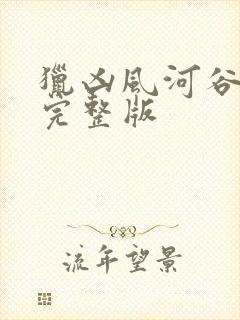 獵凶風河谷
完整版
流年望景